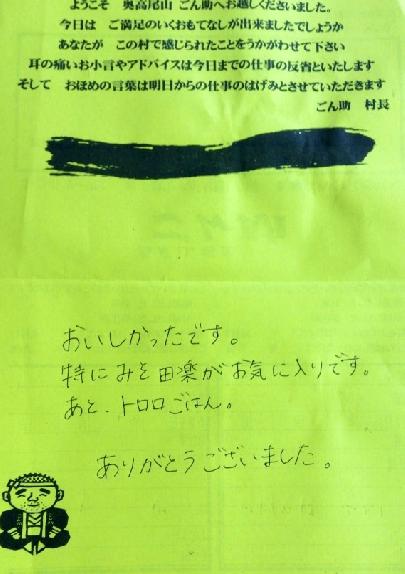 ようこそ 奥高尾山 ごん助へお越しくださいました。
今日は ご満足のいくおもてなしが出来ましたでしょうか
あなたが この村で感じられたことをうかがわせて下さい
耳の痛いお小言やアドバイスは今日までの仕事の反省といたします
そして おほめの言葉は明日からの仕事のはげみとさせていただきます
ごん助 村長
おいしかったです。
特にみそ田楽がお気に入りです。
あと、トロロごはん。
ありがとうございました。